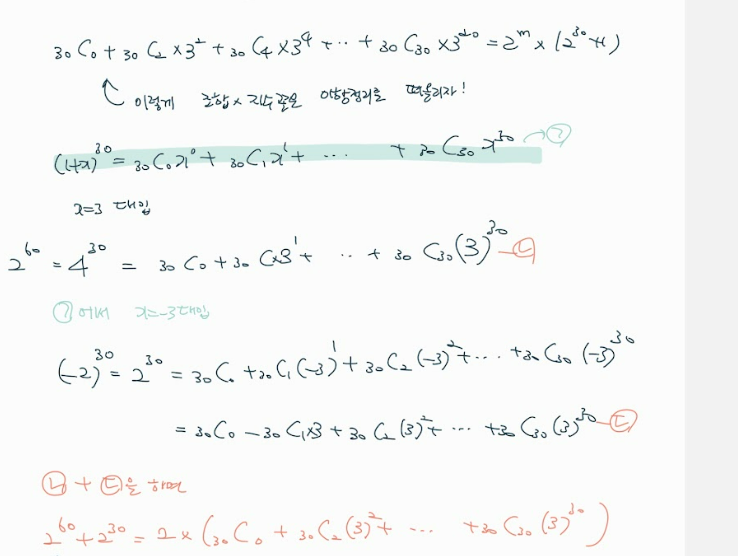 ₃₀C₀ + ₃₀C₂ × 3² + ₃₀C₄ × 3⁴ + ‥ + ₃₀C₃₀ × 3³⁰ = 2ᵐ × (2³⁰+1)
이렇게 조합 × 지수꼴은 이항정리를 떠올리자!
(1+x)³⁰ = ₃₀C₀x⁰ + ₃₀C₁x¹ + ... + ₃₀C₃₀x³⁰ → ㉠
x=3 대입
2⁶⁰ = 4³⁰ = ₃₀C₀ + ₃₀C₁×3¹ + ‥ + ₃₀C₃₀(3)³⁰ - ㉡
㉠에서 x=-3 대입
(-2)³⁰ = 2³⁰ = ₃₀C₀ + ₃₀C₁(-3)¹ + ₃₀C₂(-3)² + ... + ₃₀C₃₀(-3)³⁰
= ₃₀C₀ - ₃₀C₁×3 + ₃₀C₂(3)² + ... + ₃₀C₃₀(3)³⁰ - ㉢
㉡ + ㉢을 하면
2⁶⁰ + 2³⁰ = 2 × (₃₀C₀ + ₃₀C₂(3)² + ... + ₃₀C₃₀(3)³⁰)